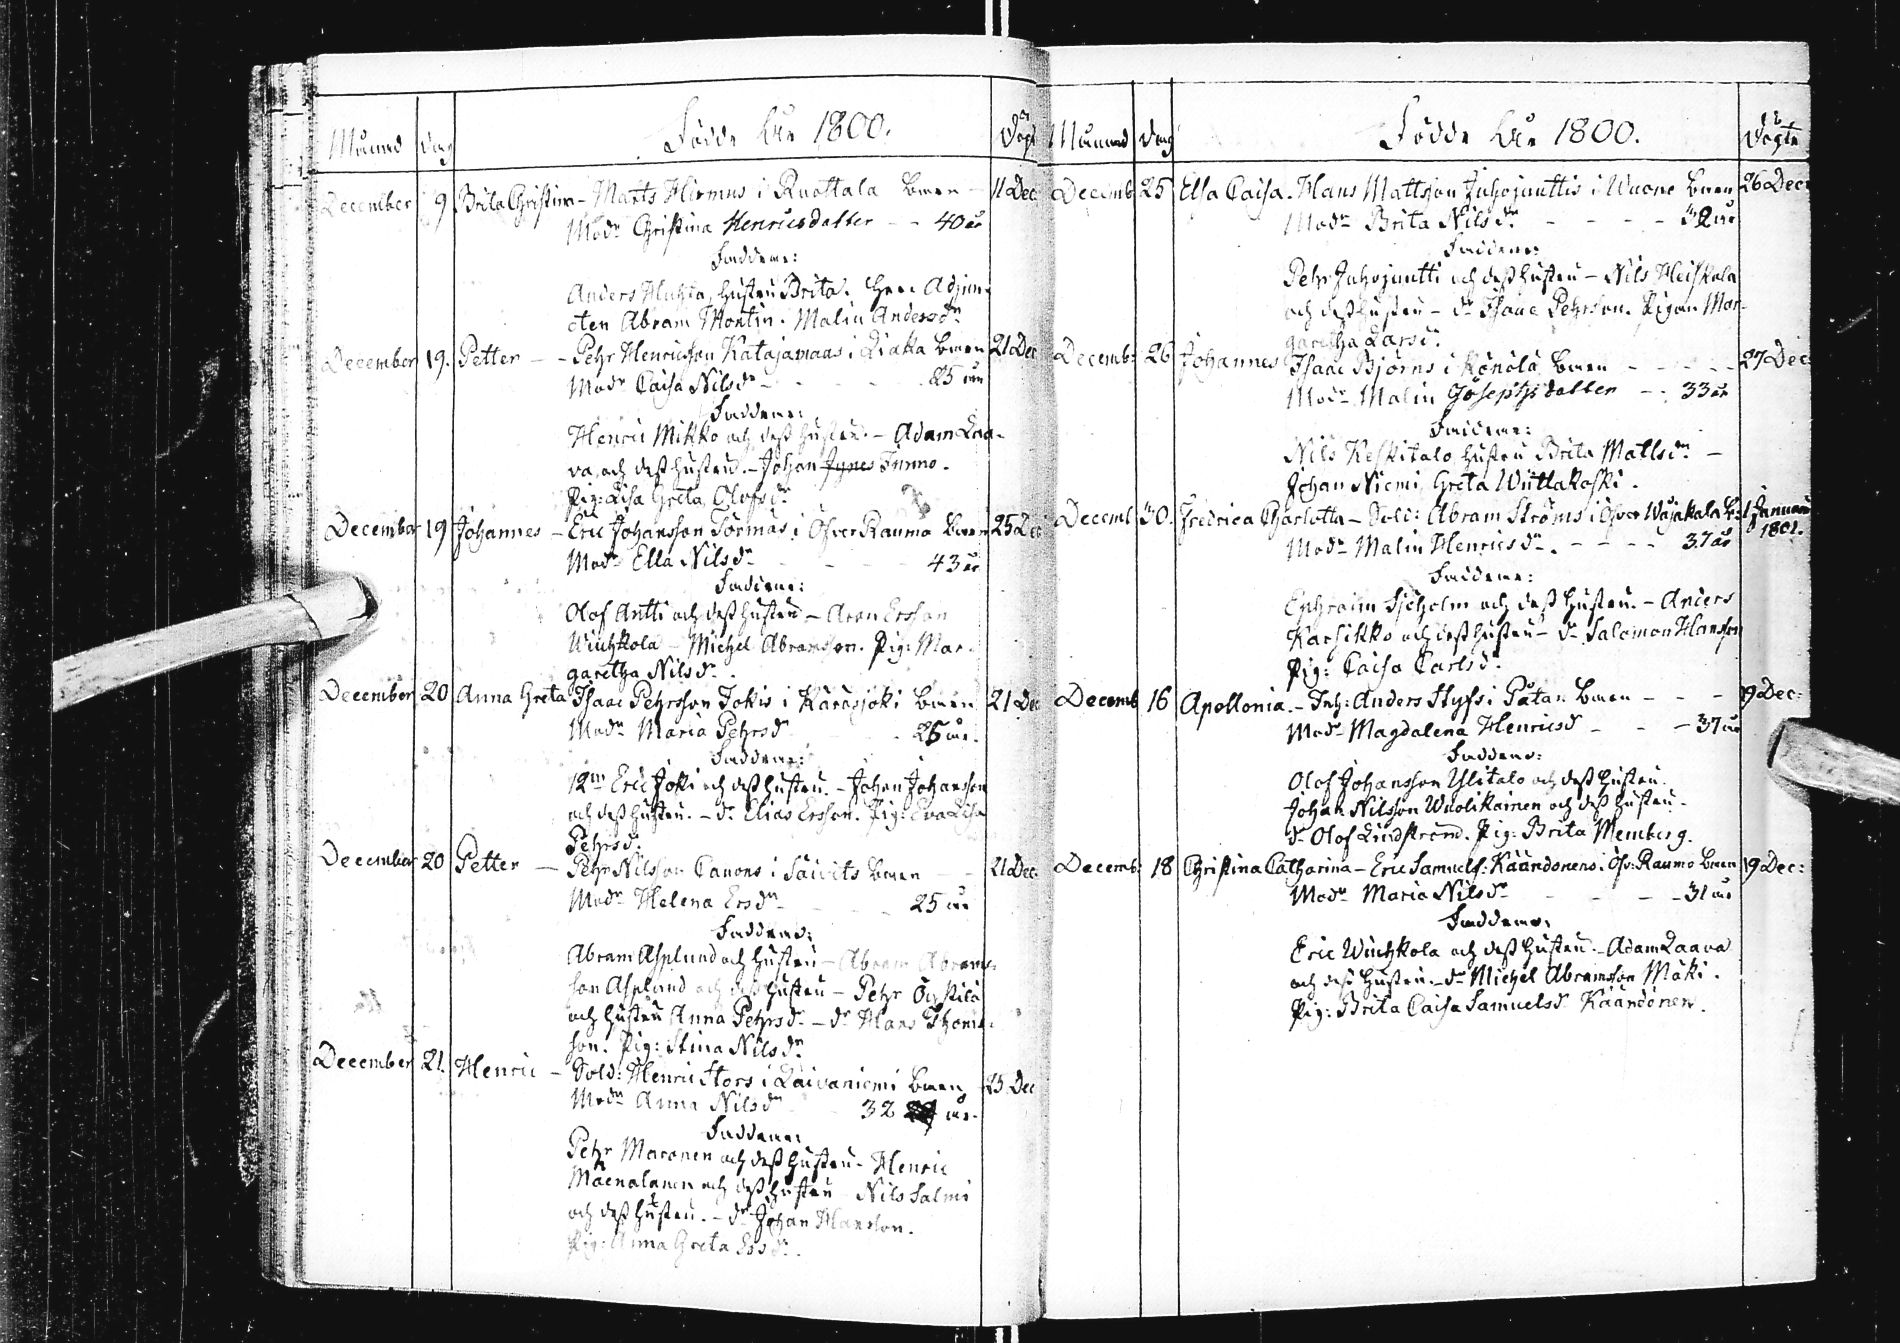 Månad Dag Födde åhr 1800. Döpt
December 9 Brita Christina - Matts Hirmus i Ruottala barn - 11 Dec
Modr Christina Henricsdatter - - 40 år
Faddrar:
Anders Huhta, hustru Brita. Herr Adjun-
cten Abram Montin. Malin Andersdr
December 19. Petter - - Pehr Henricsson Katajamaas i Liakka barn 21 Dec
Modr Caisa Nilsdr - - - 25 år
Faddrar:
Henric Mikko och dess hustru. - Adam Laa-
va och dess hustru. - Johan Junno.
Pig: Lisa Greta Olofsdr
December 19 Johannes - Eric Johansson Törmäs i Öfver Raumo barn 25 Dec
Modr Ella Nilsdr - - - 43 år
Faddrar:
Olof Antti och dess hustru - Aron Ersson
Wiuhkola - Michel Abramsson. Pig: Mar-
garetha Nilsdr.
December 20 Anna Greta Isaac Pehrsson Jokis i Karasjoki barn 21 Dec
Modr Maria Pehrsdr - 25 år.
Faddrar:
12mn Eric Joki och dess hustru. - Johan Johansson
och dess hustru. - dr Elias Ersson. Pig: Eva Lisa
Pehrsd:
December 20 Petter - Pehr Nilsson Canons i Säivits barn - - 21 Dec:
Modr Helena Ersdr - - - 25 år
Faddrar:
Abram Asplund och hustru - Abram Abrams-
son Asplund och dess hustru - Pehr
och hustru Anna Pehrsdr - dr Hans Thoms-
son. Pig: Stina Nilsdr
December 21. Henric - Sold: Henric Stors i Laivaniemi barn 25 Dec
Modr Anna Nilsdr 32 år.
Faddrar:
Pehr Maronen och dess hustru - Henric
Mäenalanen och dess hustru Nils Salmi
och dess hustru. - dr Johan Hansson.
Pig: Anna Greta Ersdr.
Månad Dag Födde åhr 1800. Döpte
Decemb: 25 Elsa Caisa. Hans Mattsson Juhojunttis i Wuono barn 26 Dec:
Modr Brita Nilsdr - - - - 32 år
Faddrar:
Pehr Juhojuntti och dess hustru - Nils Heiskala
och dess hustru - dr Isaac Pehrson. Pigan Mar-
garetha Larsd:
Decemb: 26 Johannes Isaac Björns i Könölä barn - - - - 27 Dec:
Modr Malin Josephsdatter - - 33 år
Faddrar:
Nils Keskitalo hustru Brita Mattsdr -
Johan Niemi, Greta Wiittakoski.
Decemb: 30. Fredrica Charlotta - Sold: Abram Ströms i Öfver Wojakala b: 1 Januari
1801.
Modr Malin Henricsdr. - - - 37 år
Faddrar:
Ephraim Sjöholm och dess hustru. - Anders
Karsikko och dess hustru - dr Salomon Hansson
Pig: Caisa Carlsd:
Decemb 16 Apollonia. - Inh: Anders Styfs i Pätar barn - - - 19 Dec:
Modr Magdalena Henricsd - - - 37 år
Faddrar:
Olof Johansson Ylitalo och dess hustru.
Johan Nilsson Wuolikainen och dess hustru -
dr Olof Lindström. Pig: Brita Memberg.
Decemb: 18 Christina Catharina - Eric Samuelss: Käändönens i Öfv: Raumo barn 19 Dec:
Modr Maria Nilsdr - - - 31 år
Faddrar:
Eric Wiuhkola och dess hustru. - Adam Laava
och dess hustru. - dr Michel Abramsson Mäki.
Pig: Brita Caisa Samuelsd Käändönen.